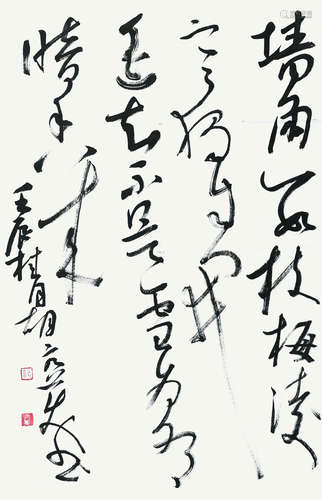 墙角数枝梅凌
寒独自开
遥知不是雪为有
暗香来
壬辰桂月胡
书